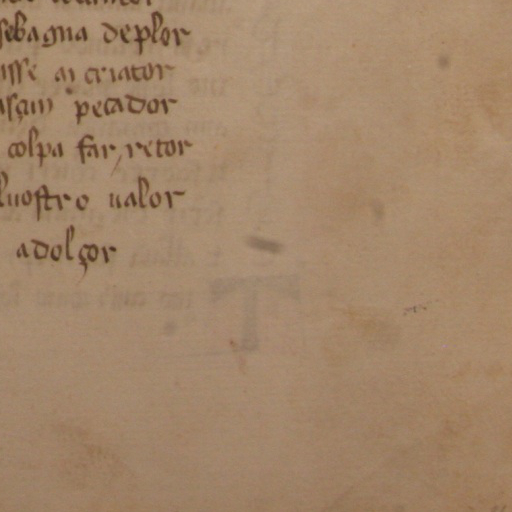 sebagna deplor
isse ai criator
ascun pecador
colpa far retor
luostro ualor
adolçor